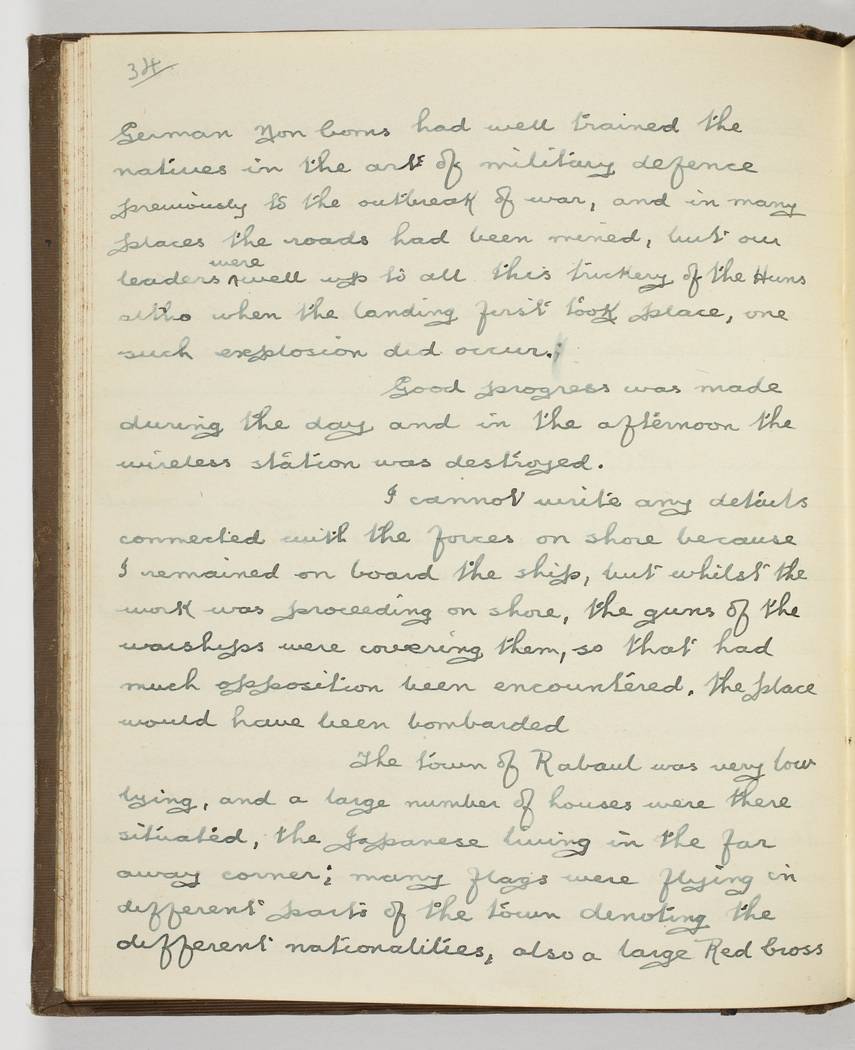 34
German Non Coms had well trained the
natives in the art of military defence
previously to the outbreak of war, and in many
places the roads had been mined, but our
were
leaders ^ well up to all this trickery of the Huns
altho when the landing first took place, one
such explosion did occur.;
Good progress was made
during the day and in the afternoon the
wireless station was destroyed.
I cannot write any details
connected with the forces on shore because
I remained on board the ship, but whilst the
work was proceeding on shore, the guns of the
warships were covering them, so that had
much opposition been encountered, the place
would have been bombarded
The town of Rabaul was very low
lying, and a large number of houses were there
situated, the Japanese living in the far
away corner; many flags were flying in
different parts of the town denoting the
different nationalities, also a large Red Cross